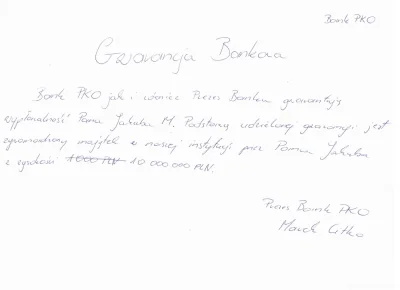 Bank PKO
Gwarancja Bankowa
Bank PKO jak i również Prezes Banku gwarantuję
wypłacalność Pana Jakuba M. Podstawą udzielonej gwarancji jest
zgromadzony majątek w naszej instytucji przez Pana Jakuba
z wysokości 1000 PLN 10 000 000 PLN.
Prezes Bank PKO
Marek